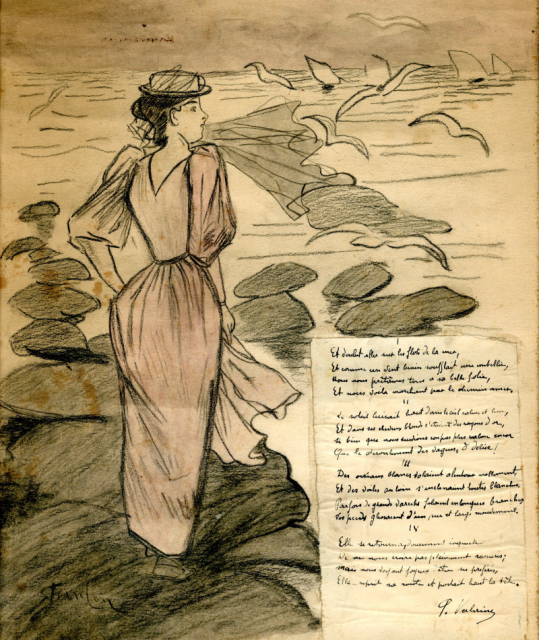 voulut aller sur les flots de la mer,
Et comme un vent bénin soufflait une embellie,
Nous nous prêtâmes tous à sa belle folie,
Et nous voilà marchant par le chemin amer.
II
Le soleil luisait haut dans le ciel calme et
Et dans ses cheveux blonds c'étaient des rayons d'or,
Si bien que nous suivions son pas plus calme encor
Que le déroulement des vagues, ô délice !
III
Des oiseaux blancs volaient alentour mollement,
Et des voiles au loin s'inclinaient toutes blanches,
Parfois de grands varechs filaient en longues branches,
Nos pieds glissaient d'un pur et large mouvement.
IV
Elle se retourna, doucement inquiète
De ne nous croire pas pleinement rassurés ;
Mais nous voyant joyeux d'être ses préférés,
Elle reprit sa route et portait haut la tête.
P. Verlaine
Steinlen